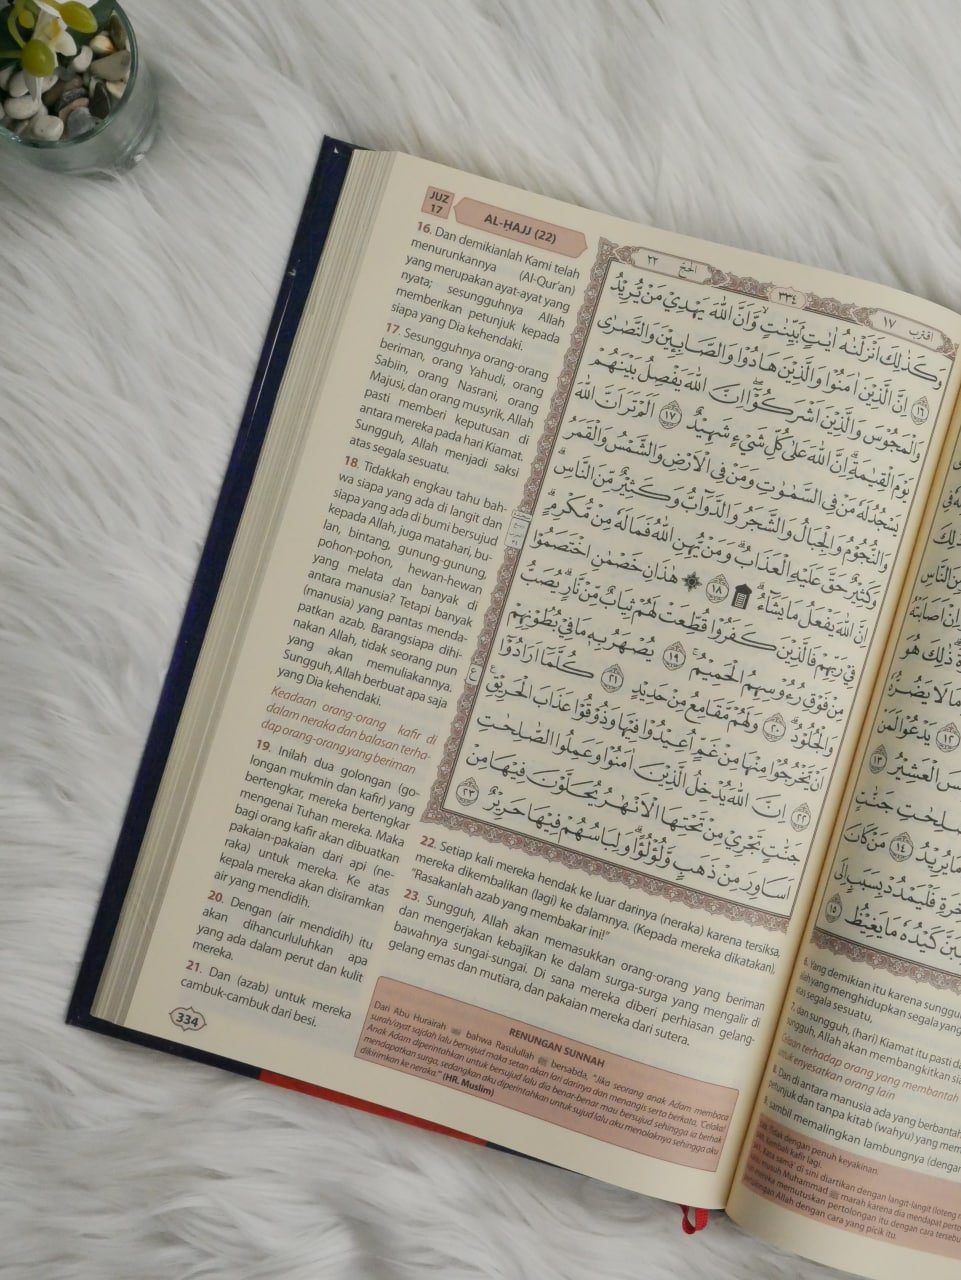 JUZ
17
AL-ḤAJJ (22)
16. Dan demikianlah Kami telah
menurunkannya (Al-Qur'an)
yang merupakan ayat-ayat yang
nyata; sesungguhnya Allah
memberikan petunjuk kepada
siapa yang Dia kehendaki.
17. Sesungguhnya orang-orang
beriman, orang Yahudi, orang
Sabiin, orang Nasrani, orang
Majusi, dan orang musyrik, Allah
pasti memberi keputusan di
antara mereka pada hari Kiamat.
Sungguh, Allah menjadi saksi
atas segala sesuatu.
18. Tidakkah engkau tahu bah-
wa siapa yang ada di langit dan
siapa yang ada di bumi bersujud
kepada Allah, juga matahari, bu-
lan, bintang, gunung-gunung,
pohon-pohon, hewan-hewan
yang melata dan banyak di
antara manusia? Tetapi banyak
(manusia) yang pantas menda-
patkan azab. Barangsiapa dihi-
nakan Allah, tidak seorang pun
yang akan memuliakannya.
Sungguh, Allah berbuat apa saja
yang Dia kehendaki.
Keadaan orang-orang kafir di
dalam neraka dan balasan terha-
dap orang-orang yang beriman
19. Inilah dua golongan (go-
longan mukmin dan kafir) yang
bertengkar, mereka bertengkar
mengenai Tuhan mereka. Maka
bagi orang kafir akan dibuatkan
pakaian-pakaian dari api (ne-
raka) untuk mereka. Ke atas
kepala mereka akan disiramkan
air yang mendidih.
20. Dengan (air mendidih) itu
akan dihancurluluhkan apa
yang ada dalam perut dan kulit
mereka.
21. Dan (azab) untuk mereka
cambuk-cambuk dari besi.
334
اقترب ١٧
٣٣٤
الحج ٢٢
وَكَذٰلِكَ اَنْزَلْنٰهُ اٰيٰتٍۢ بَيِّنٰتٍۙ وَّاَنَّ اللّٰهَ يَهْدِيْ مَنْ يُّرِيْدُ
١٦ اِنَّ الَّذِيْنَ اٰمَنُوْا وَالَّذِيْنَ هَادُوْا وَالصَّابِـِٕيْنَ وَالنَّصٰرٰى
وَالْمَجُوْسَ وَالَّذِيْنَ اَشْرَكُوْٓا ۖاِنَّ اللّٰهَ يَفْصِلُ بَيْنَهُمْ
يَوْمَ الْقِيٰمَةِۗ اِنَّ اللّٰهَ عَلٰى كُلِّ شَيْءٍ شَهِيْدٌ ١٧ اَلَمْ تَرَ اَنَّ اللّٰهَ
يَسْجُدُ لَهٗ مَنْ فِى السَّمٰوٰتِ وَمَنْ فِى الْاَرْضِ وَالشَّمْسُ وَالْقَمَرُ
وَالنُّجُوْمُ وَالْجِبَالُ وَالشَّجَرُ وَالدَّوَاۤبُّ وَكَثِيْرٌ مِّنَ النَّاسِۗ
وَكَثِيْرٌ حَقَّ عَلَيْهِ الْعَذَابُۗ وَمَنْ يُّهِنِ اللّٰهُ فَمَا لَهٗ مِنْ مُّكْرِمٍۗ
اِنَّ اللّٰهَ يَفْعَلُ مَا يَشَاۤءُ ۩ ١٨ ۞ هٰذَانِ خَصْمٰنِ اخْتَصَمُوْا
فِيْ رَبِّهِمْ فَالَّذِيْنَ كَفَرُوْا قُطِّعَتْ لَهُمْ ثِيَابٌ مِّنْ نَّارٍۗ يُصَبُّ
مِنْ فَوْقِ رُءُوْسِهِمُ الْحَمِيْمُ ۚ ١٩ يُصْهَرُ بِهٖ مَا فِيْ بُطُوْنِهِمْ
وَالْجُلُوْدُ ۗ ٢٠ وَلَهُمْ مَّقَامِعُ مِنْ حَدِيْدٍ ٢١ كُلَّمَآ اَرَادُوْٓا
اَنْ يَّخْرُجُوْا مِنْهَا مِنْ غَمٍّ اُعِيْدُوْا فِيْهَا وَذُوْقُوْا عَذَابَ الْحَرِيْقِ
٢٢ اِنَّ اللّٰهَ يُدْخِلُ الَّذِيْنَ اٰمَنُوْا وَعَمِلُوا الصّٰلِحٰتِ
جَنّٰتٍ تَجْرِيْ مِنْ تَحْتِهَا الْاَنْهٰرُ يُحَلَّوْنَ فِيْهَا مِنْ
اَسَاوِرَ مِنْ ذَهَبٍ وَّلُؤْلُؤًاۗ وَلِبَاسُهُمْ فِيْهَا حَرِيْرٌ ٢٣
22. Setiap kali mereka hendak ke luar darinya (neraka) karena tersiksa,
mereka dikembalikan (lagi) ke dalamnya. (Kepada mereka dikatakan),
"Rasakanlah azab yang membakar ini!"
23. Sungguh, Allah akan memasukkan orang-orang yang beriman
dan mengerjakan kebajikan ke dalam surga-surga yang mengalir di
bawahnya sungai-sungai. Di sana mereka diberi perhiasan gelang-
gelang emas dan mutiara, dan pakaian mereka dari sutera.
RENUNGAN SUNNAH
Dari Abu Hurairah ﷺ bahwa Rasulullah ﷺ bersabda, "Jika seorang anak Adam membaca
surah/ayat sajdah lalu bersujud maka setan akan lari darinya dan menangis serta berkata, 'Celaka!
Anak Adam diperintahkan untuk bersujud lalu dia benar-benar mau bersujud sehingga ia berhak
mendapatkan surga, sedangkan aku diperintahkan untuk sujud lalu aku menolaknya sehingga aku
dikirimkan ke neraka.'" (HR. Muslim)
6. Yang demikian itu karena sungguh
7. dan sungguh, (hari) Kiamat itu pasti
atas segala sesuatu.
sungguh, Allah akan membangkitkan
terhadap orang yang membantah
untuk menyesatkan orang lain
8. Dan di antara manusia ada yang berbantah
petunjuk dan tanpa kitab (wahyu) yang
9. sambil memalingkan lambungnya (dengan